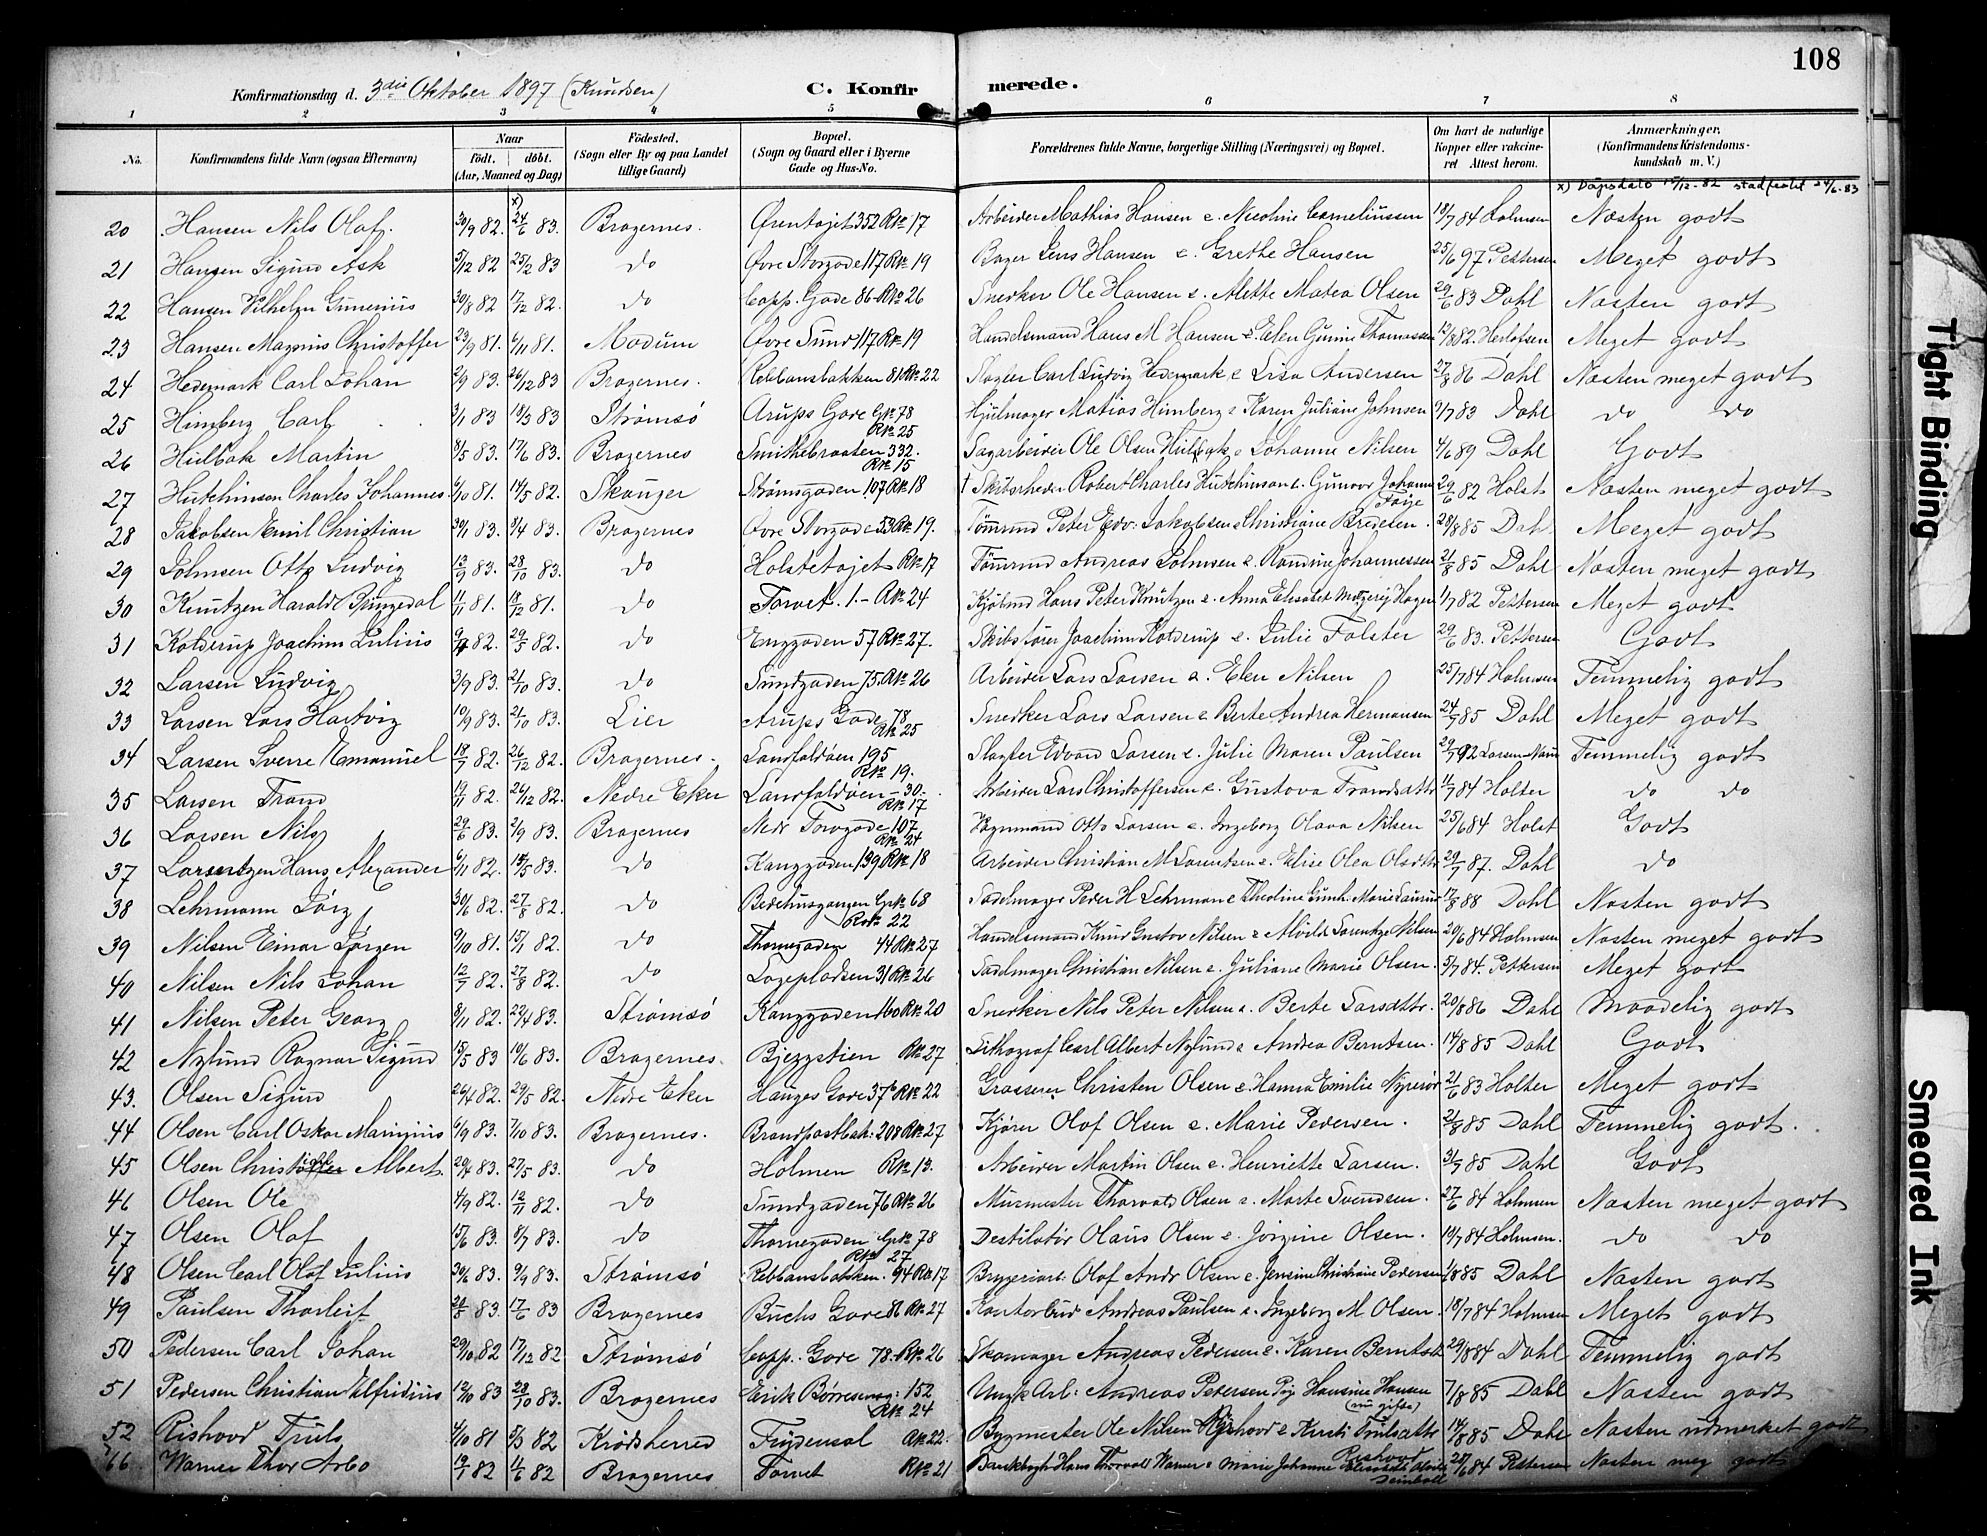 108
Konfirmationsdag d. 3die Oktober 1897 (Knudsen)
C. Konfirmerede.
1 2 3 4 5 6 7 8
No. Konfirmandens fulde Navn (ogsaa Efternavn) Naar født. døbt. (Aar, Maaned og Dag) Fødested. (Sogn eller By og paa Landet tillige Gaard) Bopæl. (Sogn og Gaard eller i Byerne Gade og Hus-No. Forældrenes fulde Navne, borgerlige Stilling (Næringsvei) og Bopæl. Om havt de naturlige Kopper eller vaccineret Attest herom. Anmærkninger. (Konfirmandens Kristendomskundskab m. V.)
x) Dåpsdato 17/12-82 stadfestet 24/6-83
20 Hansen Nils Olaf. 30/9 82. x) 24/6 83. Bragernes. Ørentøjet 352 Rk 17 Arbeider Mathias Hansen & Nicoline Corneliussen 18/7 84 Holmsen Næsten godt
21 Hansen Sigurd Ask 5/12 82 25/2 83 do Øvre Storgade 117 Rk 19 Bager Jens Hansen & Grethe Hansen 25/6 97 Pettersen Meget godt
22 Hansen Vilhelm Gunerius 30/8 82 17/12 82. do Capp. Gade 86 Rk 26 Snedker Ole Hansen & Alette Matea Olsen 29/6 83 Dahl Næsten godt
23 Hansen Magnus Christoffer 23/9 81. 6/11 81. Modum Øvre Sund 117 Rk 19 Handelsmand Hans M Hansen & Elen Gurine Thomassen 12/8 82. Meget godt
24 Hedemark Carl Johan 2/9 83. 26/12 83 Bragernes. Rebbansbakken 81 Rk 22 Slagter Carl Ludvig Hedemark & Lisa Andersen 27/8 86 Dahl Næsten meget godt
25 Himberg Carl 3/1 83 18/3 83 Strømsö Arups Gade Gk 78 Rk 25 Hjulmager Matias Himberg & Karen Juliane Johnsen 9/7 83 Dahl do do
26 Hulbak Martin 8/5 83. 17/6 83. Bragernes Smithebraaten 332. Rk 15 Sagarbeider Ole Olsen Hulbak & Johanne Nilsen 4/6 89 Dahl Godt
27 Hutchinson Charles Johannes. 6/10 81. 14/5 82. Skauger Strømsgaden 107 Rk 18 † Skibsrheder Robert Charles Hutchinson & Gunvor Johanne Foije 29/6 82 Holst Næsten meget godt
28 Jakobsen Emil Christian 30/1 83. 8/4 83. Bragernes Øvre Storgade 53 Rk 19. Tömmrmd Peter Edv. Jakobsen & Christiane Bredesen. 28/8 85 Dahl Meget godt
29 Johnsen Otto Ludvig 13/9 83. 28/10 83. do Holstetøjet Rk 17 Tömmrmd Andreas Johnsen & Randine Johannessen 21/8 85 Dahl Næsten meget godt
30 Knutzen Harald Bringedal 11/11 81. 18/12 81. do Torvet. 1.- Rk 24 Kjøbmd Hans Peter Knutzen & Anna Elisabet Margerig Hagen 1/7 82 Pettersen Meget godt
31 Kolderup Joachim Julius 9/4 82. 29/5 82. do Enggaden 57 Rk 27. Skibsfører Joachim Kolderup & Julie Folster 29/6 83. Pettersen Godt
32 Larsen Ludvig 3/9 83. 21/10 83. do Sundgaden 75. Rk 26 Arbeider Lars Larsen & Elen Nilsen 25/7 84 Holmsen Temmelig godt
33 Larsen Lars Hartvig 10/9 83. 21/10 83. Lier Arups Gade 78 Rk 25 Snedker Lars Larsen & Berte Andrea Hermansen 24/7 85 Dahl Meget godt
34 Larsen Sverre Emanuel 18/7 82. 26/12 82. Bragernes. Landfaldöen 195 Rk 19. Slagter Edvard Larsen & Julie Maren Paulsen 29/7 92 Temmelig godt
35 Larsen Frans 19/11 82. 26/12 82. Nedre Eker Landfaldöen - 30. Rk 17 Arbeider Lars Christoffersen & Gustava Frandsdttr 1/7 84 Holter do do
36 Larsen Nils 29/6 83. 2/9 83. Bragernes Nedr Torvgade 107 Rk 24 Vognmand Otto Larsen & Ingeborg Olava Nilsen 25/6 84 Holst Godt
37 Larsentzen Hans Alexander 6/11 82. 15/5 83. do Kanggaden 139 Rk 18 Arbeider Christian M Larentsen & Elise Olea Olsdttr 29/7 87. Dahl do
38 Lehrmann Jörg 30/6 82. 27/8 82. do Bedehusgangen Gk 68 Rk 22 Sadelmager Peder H Lehrman & Theoline Gunh. Marie 17/8 88 Dahl Næsten godt
39 Nilsen Einar Jörgen 9/10 81. 15/1 82. do Thornegaden 44 Rk 27 Handelsmand Knud Gustav Nilsen & Alvilde Larentze Nilsen 20/6 84 Holmsen Næsten meget godt
40 Nilsen Nils Johan 12/7 82. 27/8 82. do Logepladsen 31 Rk 26 Sadelmager Christian Nilsen & Juliane Marie Olsen. 5/7 84. Pettersen Meget godt
41 Nilsen Peter Georg 8/11 82. 22/4 83. Strømsö Kanggaden 160 Rk 20 Snedker Nils Peter Nilsen & Berte Larsdttr. 20/8 86 Dahl Maadelig godt
42 Nylund Ragnar Sigurd 18/5 83 10/6 83. Bragernes. Bjeggstien Rk 27 Lithograf Carl Albert Nylund & Andrea Berntsen. 14/8 85 Dahl Godt
43. Olsen Sigurd 26/4 82. 29/5 82. Nedre Eker Hauges Gade 37b Rk 22 Grasserer Christen Olsen & Hanna Emilie 21/6 83 Holter Meget godt
44 Olsen Carl Oskar Marinius 6/9 83. 7/10 83. Bragernes. Brandpostbak. 208 Rk 27 Kjører Olaf Olsen & Marie Pedersen. 21/8 85 Dahl Temmelig godt.
45 Olsen Christoffer Albert 20/4 83. 27/5 83. do Holmen Rk 13. Arbeider Martin Olsen & Henriette Larsen. 31/7 85 Dahl Godt
46 Olsen Ole 4/9 82. 12/11 82. do Sundgaden 76 Rk 26 Murmester Thorvald Olsen & Marte Svendsen. 27/6 84 Holmsen Næsten meget godt
47 Olsen Olaf 15/6 83. 8/7 83. do Thornegaden Gk 78 Rk 27 Destilatör Olaus Olsen & Jorgine Olsen. 10/7 84 Holmsen. do do
48 Olsen Carl Olaf Julius 30/6 83. 9/9 83. Strømsö Rebbansbakken. 94 Rk 17 Bryggeriarb. Olaf Andr Olsen & Jensine Christiane Pedersen 1/8 85 Dahl Næsten godt
49 Paulsen Thorleif 20/5 83. 17/6 83 Bragernes Buchs Gade 86 Rk 27 Kontorbud Andreas Paulsen & Ingeborg M. Olsen. 18/7 84 Holmsen Meget godt
50 Pedersen Carl Johan 29/10 82 17/12 82 Strømsö Capp. Gade 78. Rk 26 Skomager Andreas Pedersen & Karen Berntsdtr 29/8 84 Dahl Temmelig godt
51 Pedersen Christian Alfridius 12/10 83 28/10 83. Bragernes Erik Börresensg: 152 Rk 24 Ungk Arb: Andreas Petersen Pig Hansine Hansen (nu gifte) 7/8 85 Dahl Næsten godt
52 Rishovd Truls 4/10 81 5/3 82 Krødsherred Frydensal Rk 22. Bygmester Ole Nilsen Rishovd & Kirsti Trulsdttr Rishovd 14/8 85 Dahl Næsten udmerket godt
66 Warner Thor Arbo 19/1 82 11/6 82 Bragernes Torvet Rk 21 Bankbogh Hans Thorvald Warner & Marie Johanne Elisabeth 27/6 84 Pettersen Næsten meg godt
Tight Binding
Smeared Ink